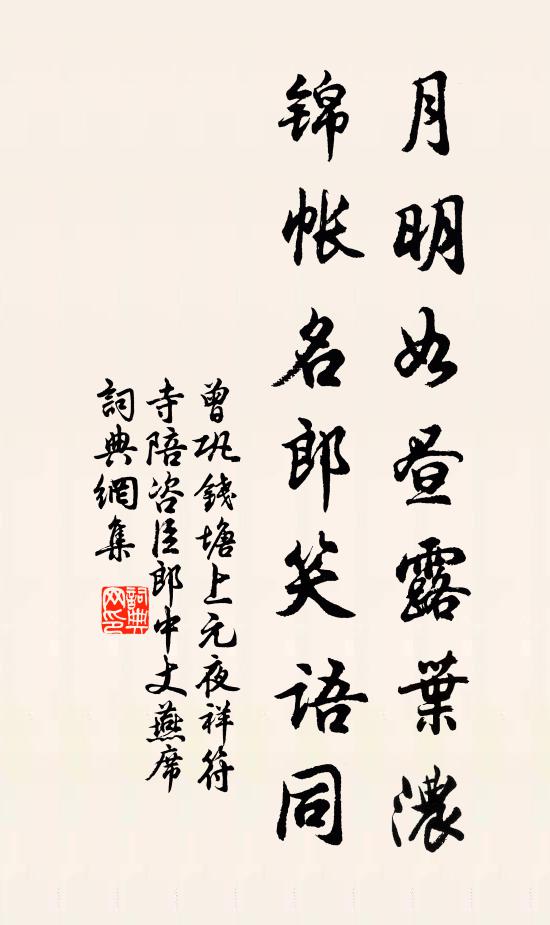 月明如昼露葉濃
錦帐名郎笑语同
曾巩錢塘上元夜祥符
寺陪咨臣郎中丈燕席
詞典網集
詞典网印